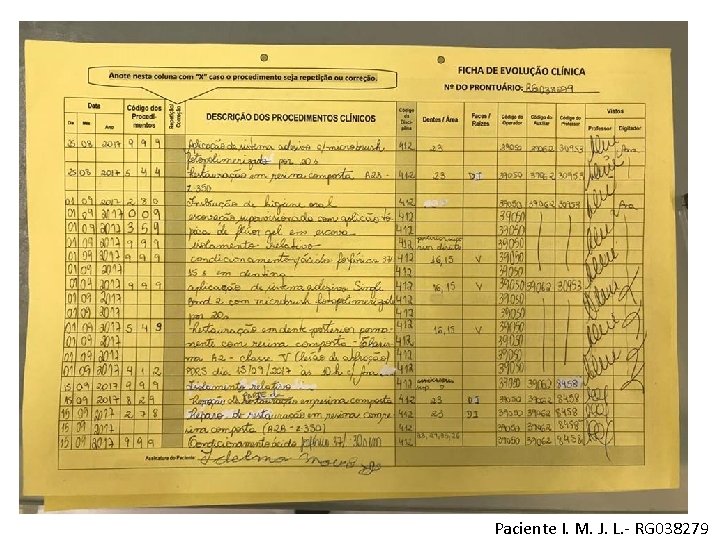 Anote nesta coluna com "X" caso o procedimento seja repetição ou correção.
FICHA DE EVOLUÇÃO CLÍNICA
Nº DO PRONTUÁRIO: RG038279
Data Código dos Procedimentos Repetição/Correção DESCRIÇÃO DOS PROCEDIMENTOS CLÍNICOS Código da Disciplina Dentes / Área Faces / Raízes Código do Operador Código do Auxiliar Código do Professor Vistos
Dia Mês Ano Professor Digitador
25 08 2017 9 9 9 Aplicação de sistema adesivo c/ microbrush 412 23 39050 39062 30953
fotopolimerizado por 20s
25 08 2017 5 4 4 Restauração em resina composta A2B - 412 23 DI 39050 39062 30953
Z 350
01 09 2017 2 8 0 Instrução de higiene oral 412 39050 39062 30953
01 09 2017 0 0 9 escovação supervisionada com aplicação tó 412 39050
01 09 2017 3 5 9 pica de flúor gel em escova 412 39050
01 09 2017 9 9 9 isolamento relativo 412 39050
01 09 2017 9 9 9 condicionamento ácido fosfórico 37% 412 16,15 V 39050
01 09 2017 15 s em dentina 412 39050
01 09 2017 9 9 9 aplicação de sistema adesivo Single 412 16,15 V 39050 39062 30953
01 09 2017 Bond 2 com microbrush fotopolimerizado 412 39050
01 09 2017 por 20s 412 39050
01 09 2017 5 4 9 Restauração em dente posterior perma- 412 16,15 V 39050
01 09 2017 nente com resina composta - 412 39050
01 09 2017 A2 - classe V (lesão de abfração) 412 39050
01 09 2017 4 1 2 dia 15/09/2017 às 10 h 412 39050
15 09 2017 9 9 9 Isolamento relativo 412 39050 39062 8458
15 09 2017 8 2 9 Remoção de restauração em resina composta 412 23 DI 39050 39062 8458
15 09 2017 2 7 8 Reparo de restauração em resina compo- 412 23 DI 39050 39062 8458
15 09 2017 composta (A2B - Z350) 412 39050 39062 8458
15 09 2017 9 9 9 Condicionamento ácido fosfórico 37% 412 39050 39062 8458
Assinatura do Paciente:
Paciente I. M. J. L. - RG038279